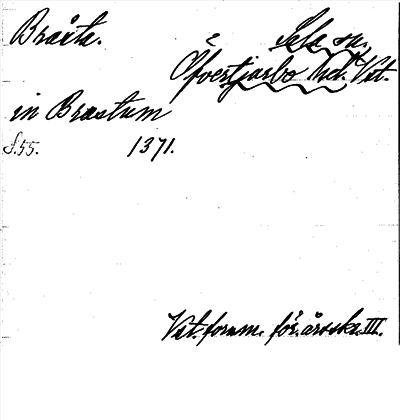 Bråsta.
Sela sn,
Öfvertjurbo hd. Vst.
in Brastum
S. 55. 1371.
Vst. fornm. för. årsskr. III.